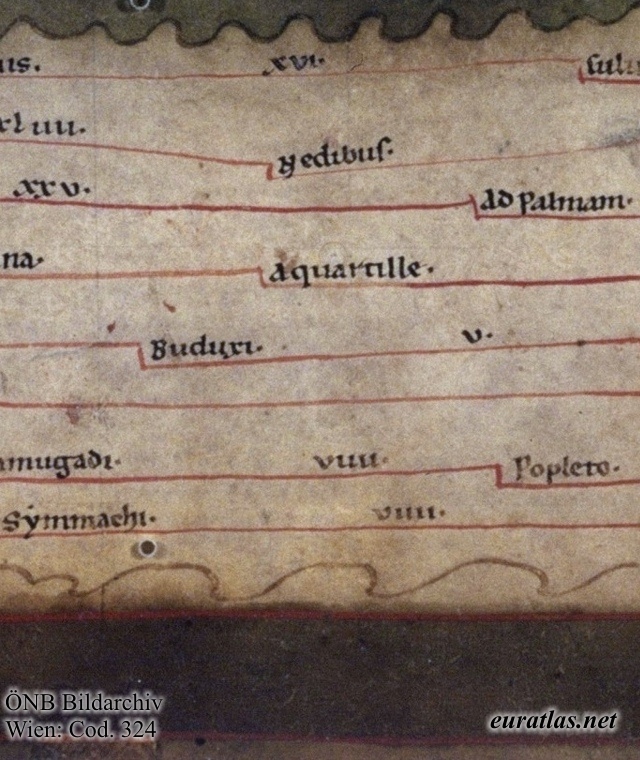 us. xvi. sulu
xl uu.
gedibus.
xxv. ad palmam.
na. aquartille.
Buduxi. v.
amugadi. vuu. Popleto.
Symmachi. vuu.
ÖNB Bildarchiv
Wien: Cod. 324 euratlas.net